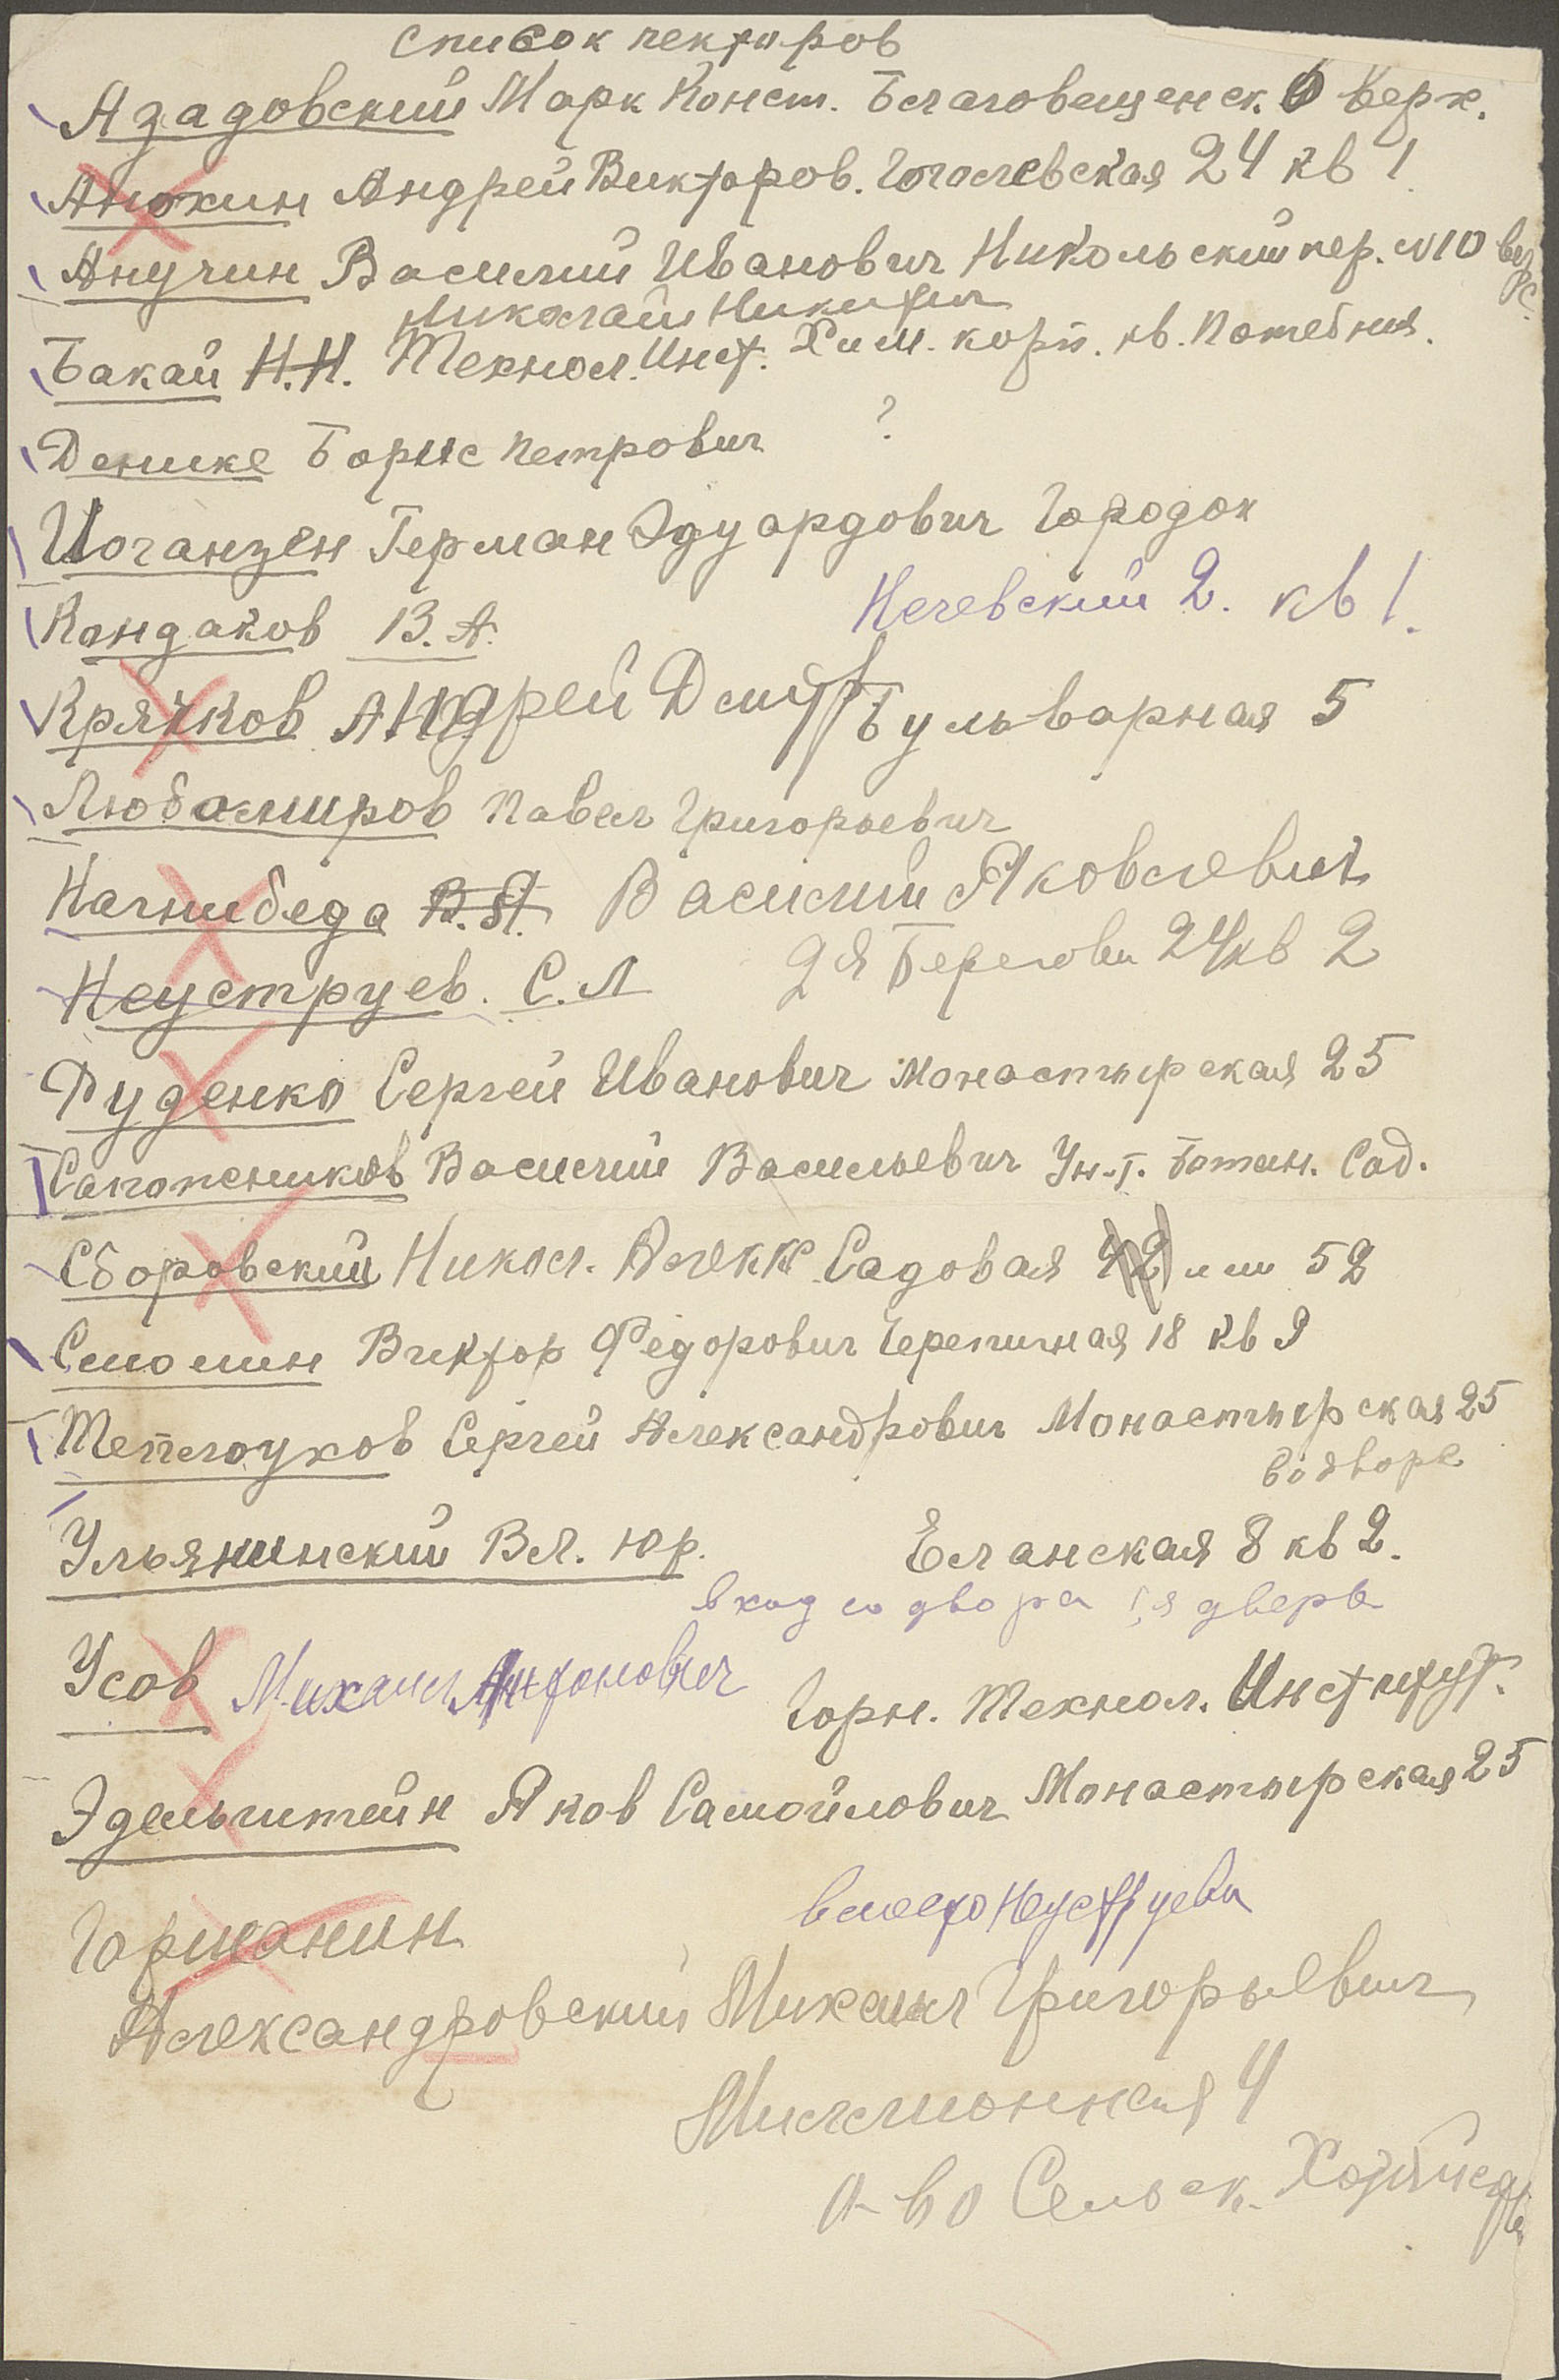 Список лекторов
Азадовский Марк Конст. Благовещенск. 6 верх.
Анохин Андрей Викторов. Гоголевская 24 кв 1.
Анучин Василий Иванович Никольский пер. №10 верх.
Николай Никитич
Бакай Н.Н. Технол. Инст. Хим. корп. кв. Потебня.
Денике Борис Петрович ?
Иоганзен Герман Эдуардович Городок
Нечевский 2. кв 1.
Кандаков В. А.
Крячков Андрей Дмитр Бульварная 5
Любомиров Павел Григорьевич
Нагнибеда В.Я. Василий Яковлевич
2я Берегови 24 кв 2
Неуструев. С. Л
Руденко Сергей Иванович Монастырская 25
Сапожников Василий Васильевич Ун-т. Ботан. Сад.
Сборовский Никол. Алекс. Садовая 42 или 52
Смолин Виктор Фёдорович Черепичная 18 кв 9
Теплоухов Сергей Александрович Монастырская 25
во дворе
Ульянинский Вл. Юр. Еланская 8 кв 2.
вход со двора 1я дверь
Усов Михаил Антонович Горн. Технол. Институт.
Эдельштейн Яков Самойлович Монастырская 25
вместо Неуструева
Горшанин
Александровский Михаил Григорьевич
Миллионная 4
О-во Сельск. Хозяйства